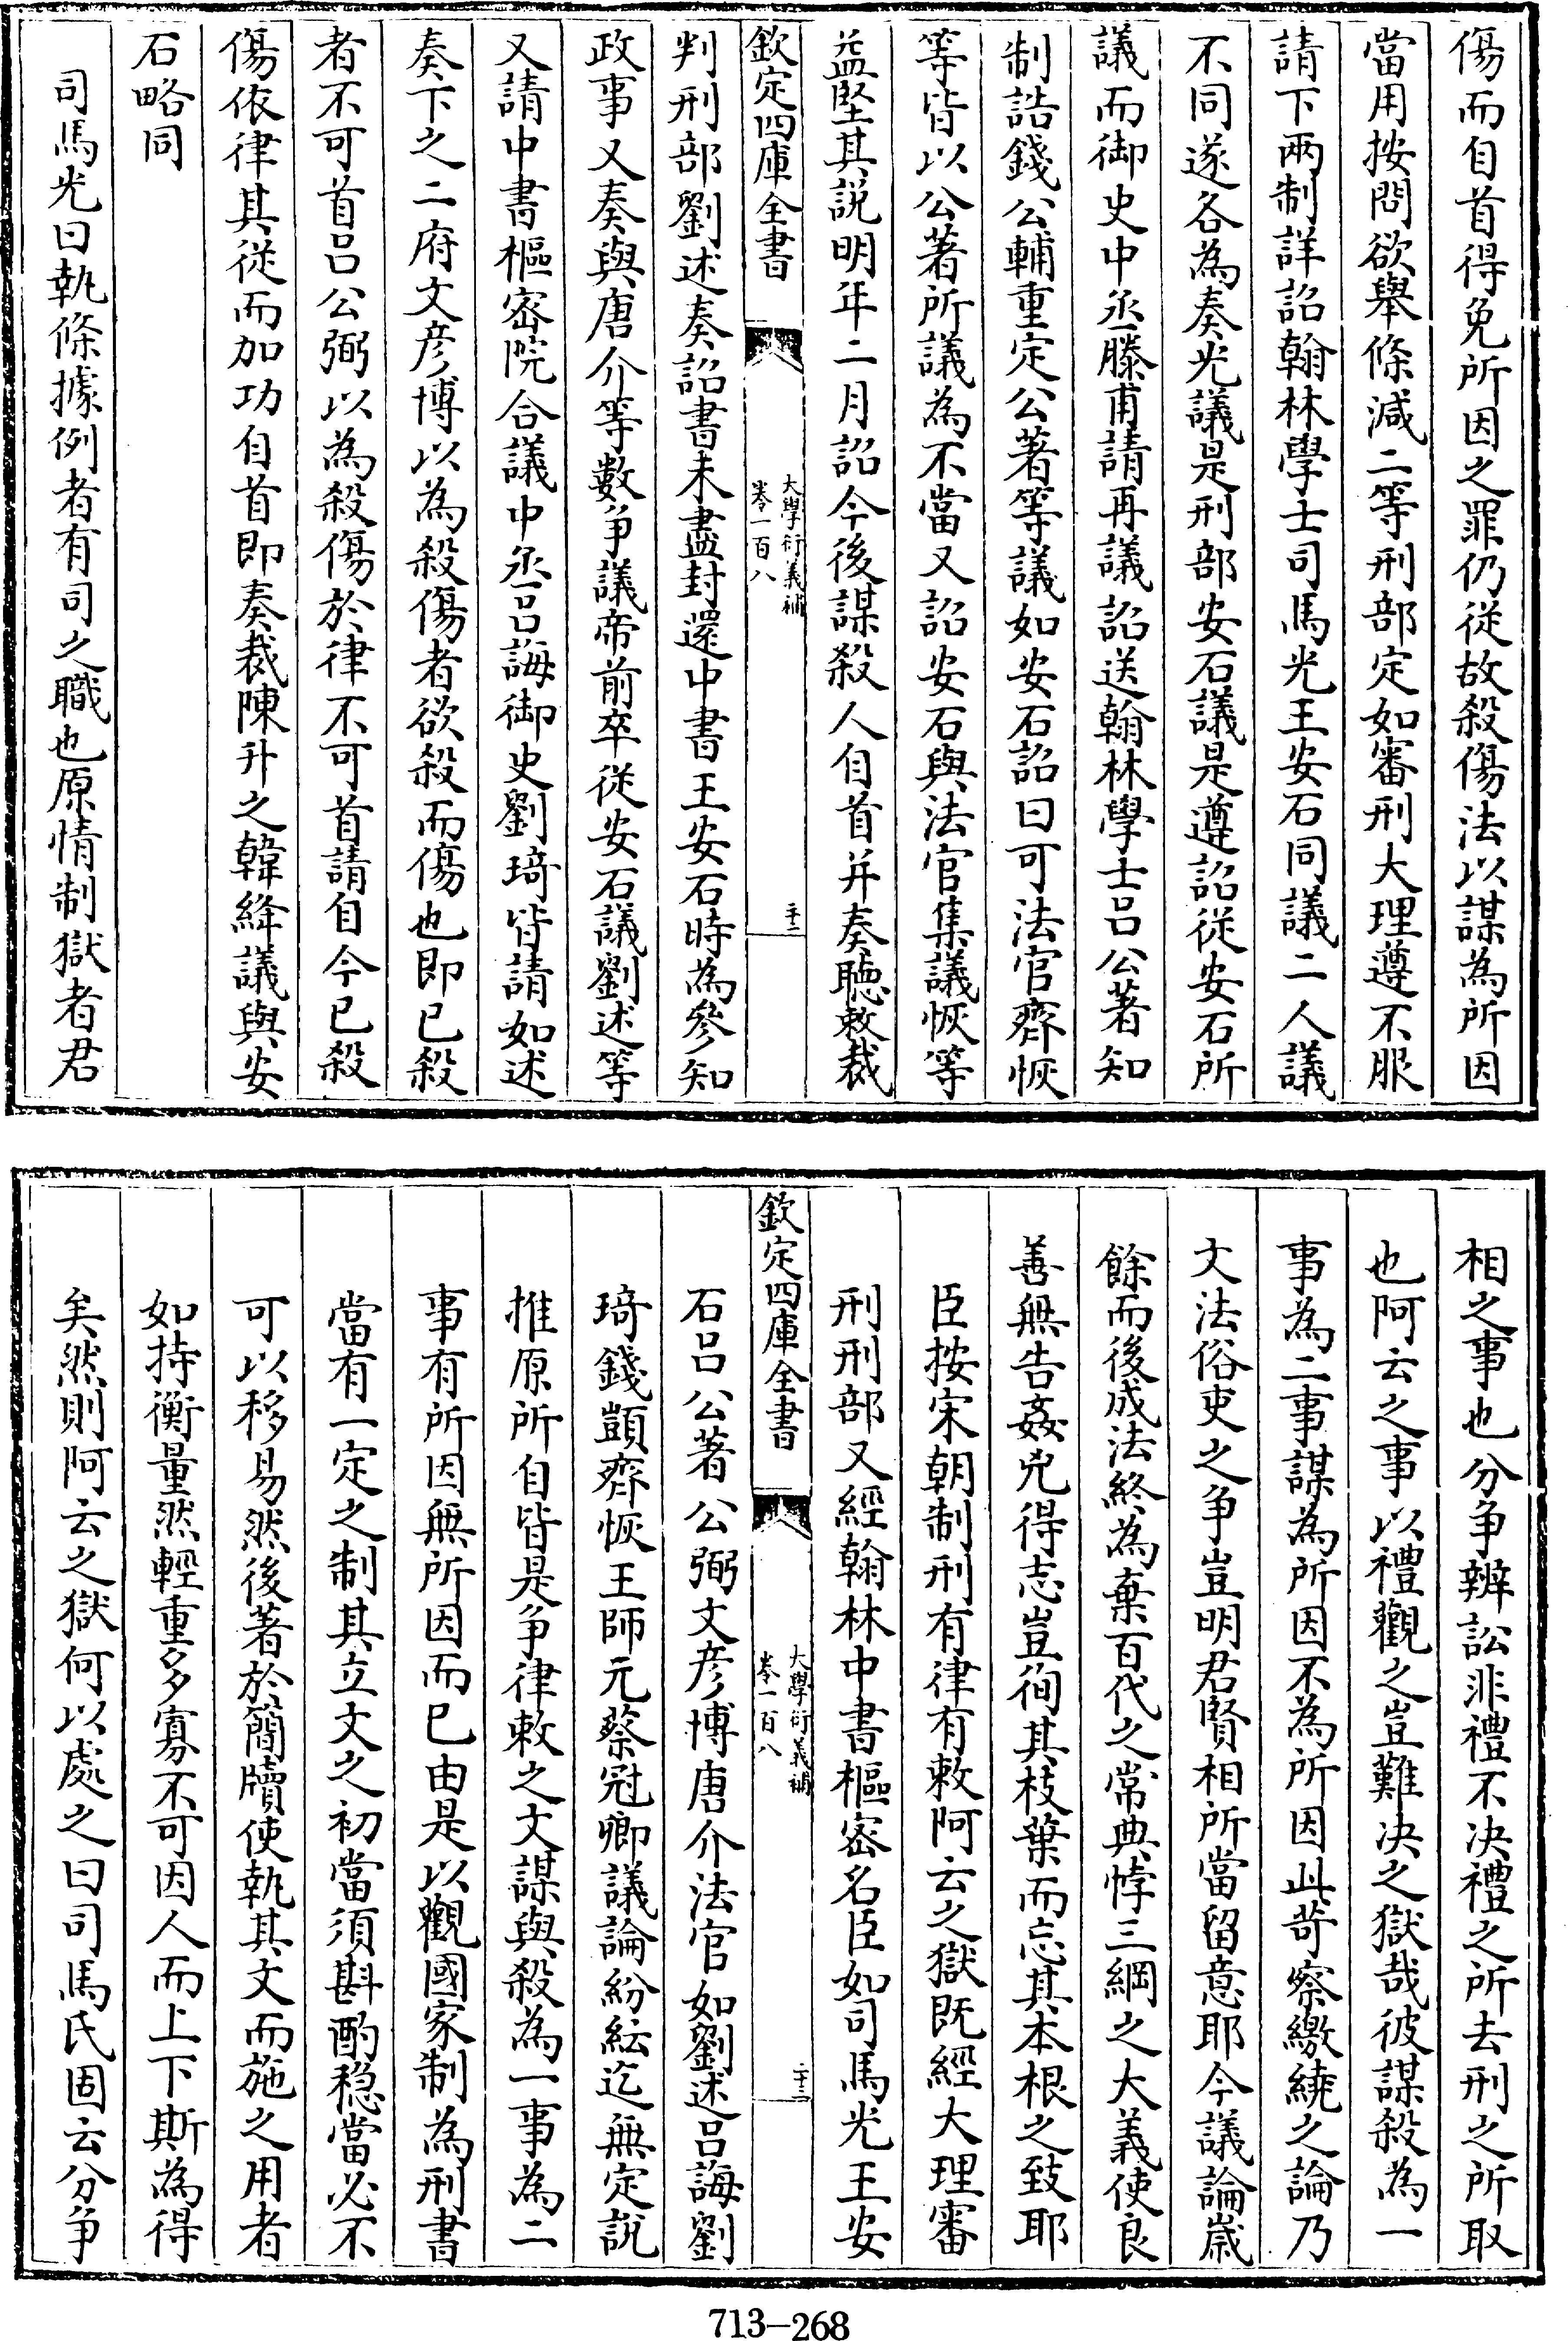 傷而自首得免所因之罪仍從故殺傷法以謀為所因
當用按問欲舉條減二等刑部定如審刑大理遵不服
請下兩制詳詔翰林學士司馬光王安石同議二人議
不同遂各為奏光議是刑部安石議是遵詔從安石所
議而御史中丞滕甫請再議詔送翰林學士吕公著知
制誥錢公輔重定公著等議如安石詔曰可法官齊恢
等皆以公著所議為不當又詔安石與法官集議恢等
益堅其說明年二月詔今後謀殺人自首并奏聽敕裁
欽定四庫全書
大學衍義補
卷一百八
二十二
判刑部劉述奏詔書未盡封還中書王安石時為參知
政事又奏與唐介等數争議帝前卒從安石議劉述等
又請中書樞密院合議中丞吕誨御史劉琦皆請如述
奏下之二府文彦博以為殺傷者欲殺而傷也即已殺
者不可首吕公弼以為殺傷於律不可首請自今已殺
傷依律其從而加功自首即奏裁陳升之韓絳議與安
石略同
司馬光曰執條據例者有司之職也原情制獄者君
相之事也分争辨訟非禮不决禮之所去刑之所取
也阿云之事以禮觀之豈難决之獄哉彼謀殺為一
事為二事謀為所因不為所因此苛察繳繞之論乃
文法俗吏之争豈明君賢相所當留意耶今議論嵗
餘而後成法終為棄百代之常典悖三綱之大義使良
善無告姦兇得志豈徇其枝葉而忘其本根之致耶
臣按宋朝制刑有律有敕阿云之獄既經大理審
刑刑部又經翰林中書樞密名臣如司馬光王安
欽定四庫全書
大學衍義補
卷一百八
二十三
石吕公著公弼文彦博唐介法官如劉述吕誨劉
琦錢顗齊恢王師元蔡冠卿議論紛紜迄無定說
推原所自皆是争律敕之文謀與殺為一事為二
事有所因無所因而已由是以觀國家制為刑書
當有一定之制其立文之初當須斟酌穩當必不
可以移易然後著於簡牘使執其文而施之用者
如持衡量然輕重多寡不可因人而上下斯為得
矣然則阿云之獄何以處之曰司馬氏固云分争
713-268